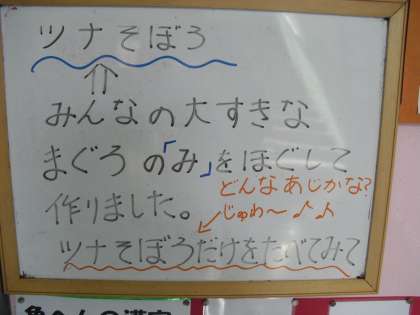 ツナそぼろ
⇑
みんなの大すきな
まぐろの「み」をほぐして
作りました。
どんなあじかな?
じゅわ〜♪♪
ツナそぼろだけをたべてみて